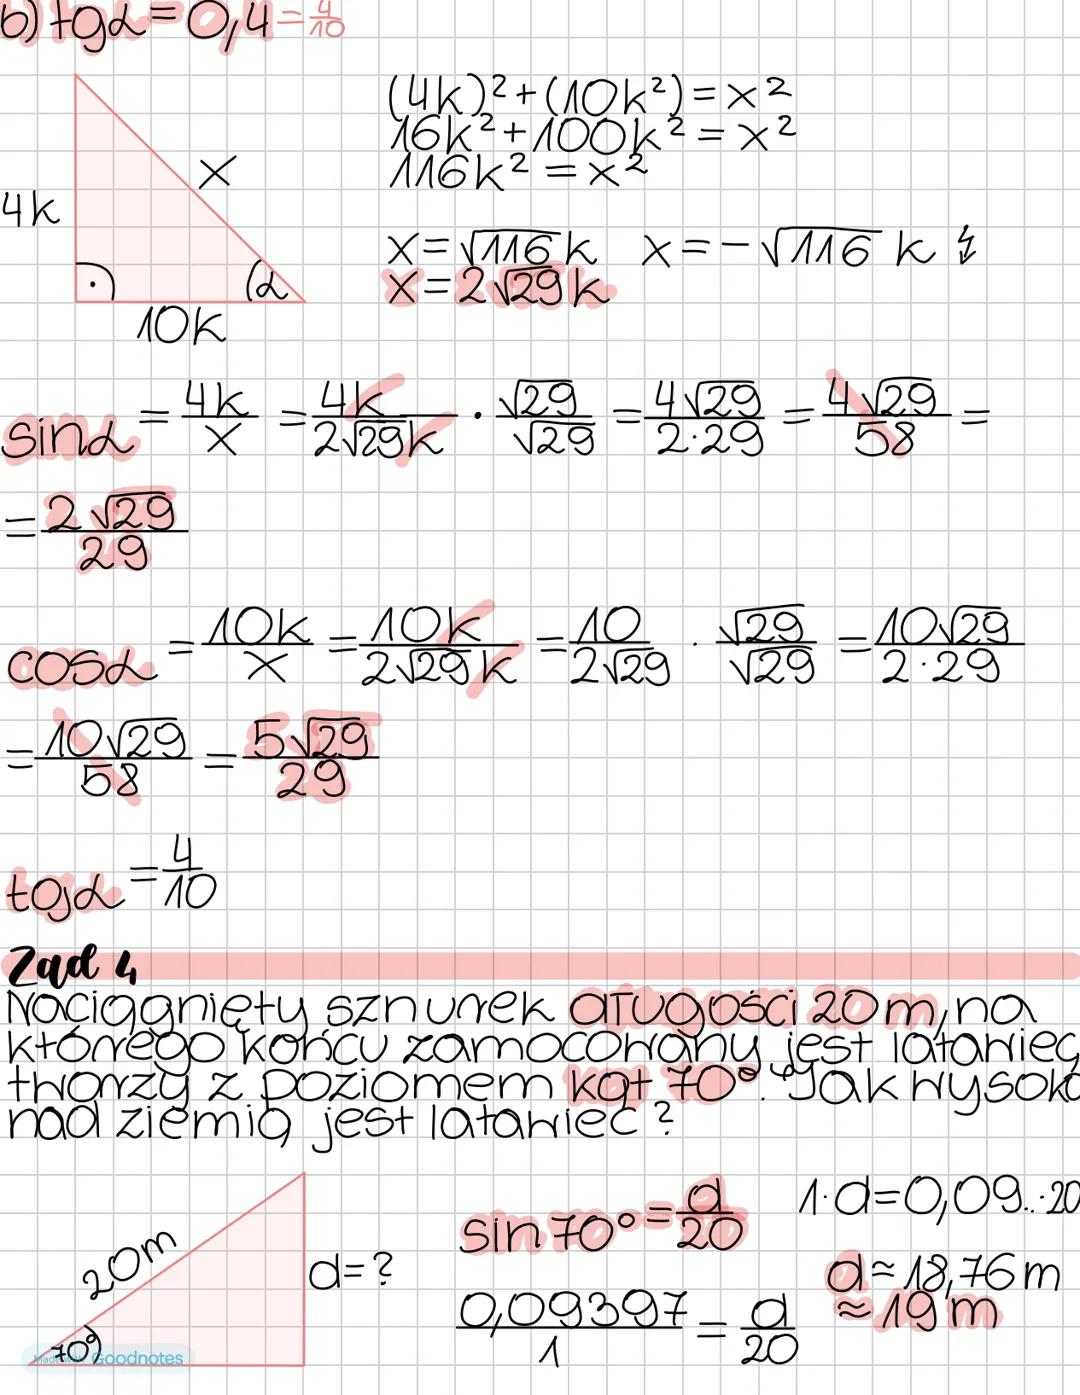 b) tgα = 0,4 = 4/10
(4k)² + (10k²) = x²
16k² + 100k² = x²
116k² = x²
x
4k
x = √116 k   x = - √116 k ↯
x = 2√29 k
α
10k
sinα = 4k/x = 4k/2√29k · √29/√29 = 4√29/2·29 = 4√29/58 =
= 2√29/29
cosα = 10k/x = 10k/2√29k = 10/2√29 · √29/√29 = 10√29/2·29
= 10√29/58 = 5√29/29
tgα = 4/10
Zad 4
Naciągnięty sznurek długości 20m, na
którego końcu zamocowany jest latawiec,
tworzy z poziomem kąt 70°. Jak wysoko
nad ziemią jest latawiec?
20m
d=?
70°
sin70° = d/20
1·d=0,09..·20
0,09397/1 = d/20
d≈18,76m
≈19m
Made with Goodnotes